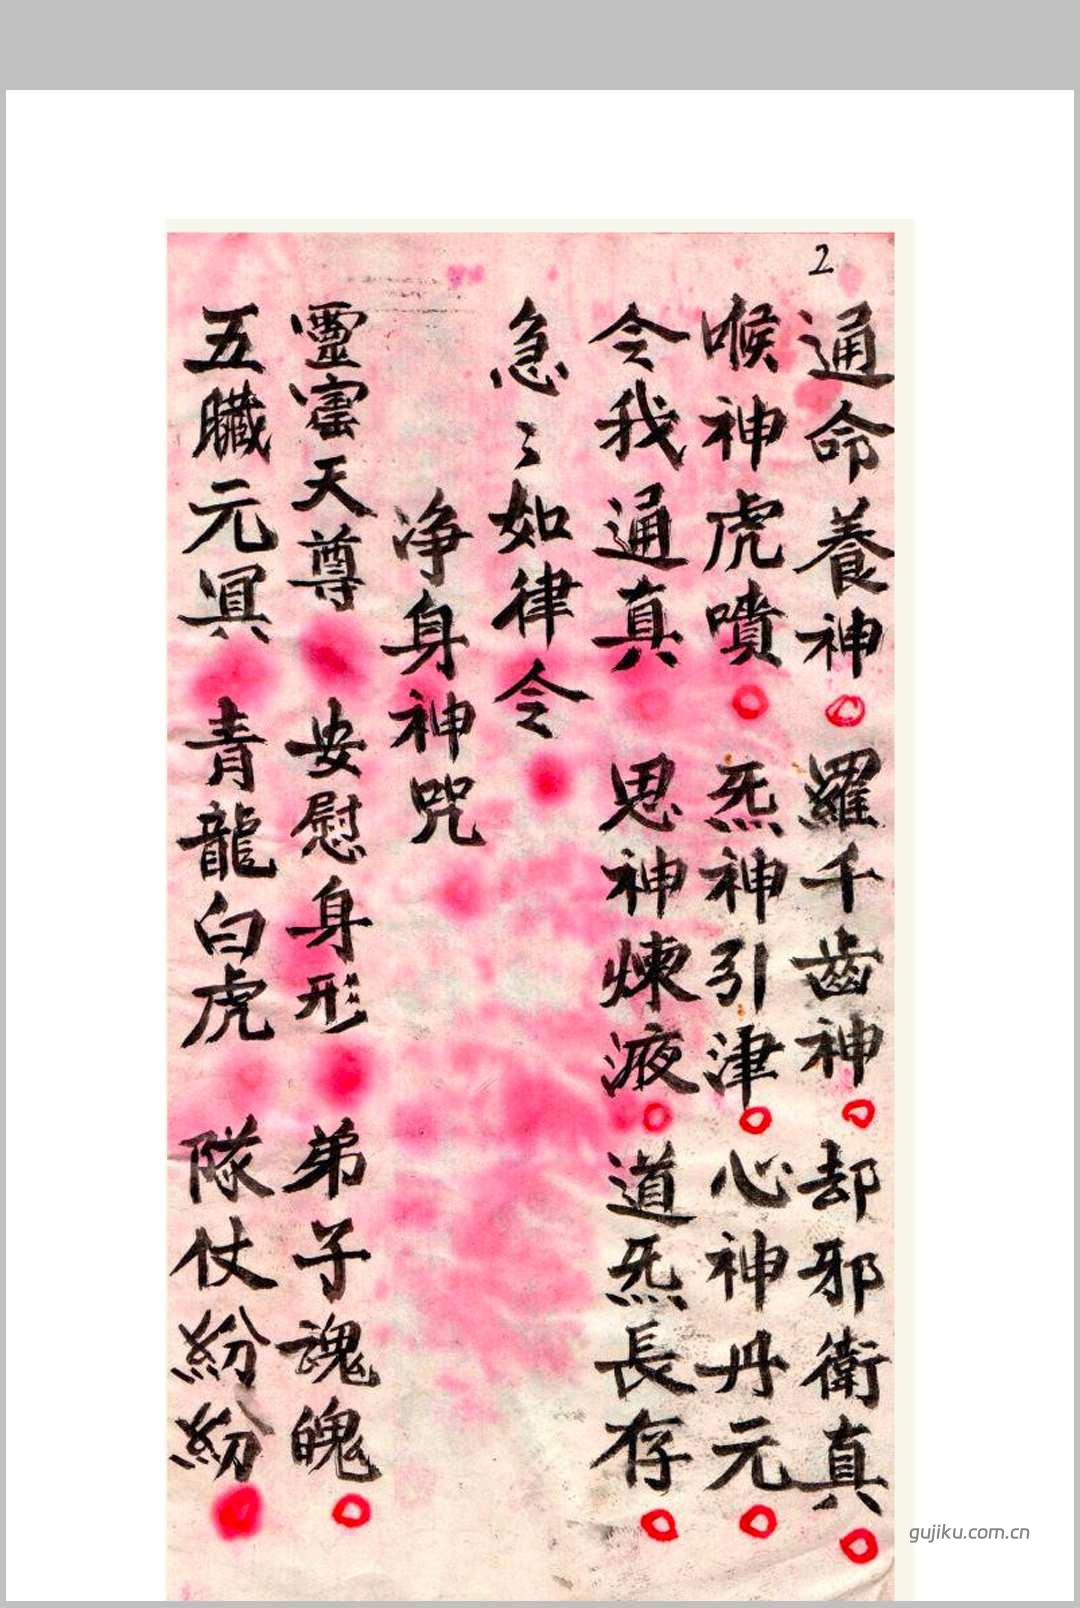 2
通命養神 羅千齒神 却邪衛真
喉神虎噴 炁神引津 心神丹元
令我通真 思神煉液 道炁長存
急〻如律令
净身神咒
靈寳天尊 安慰身形 弟子魂魄
五臟元冥 青龍白虎 隊仗紛紛
gujiku.com.cn